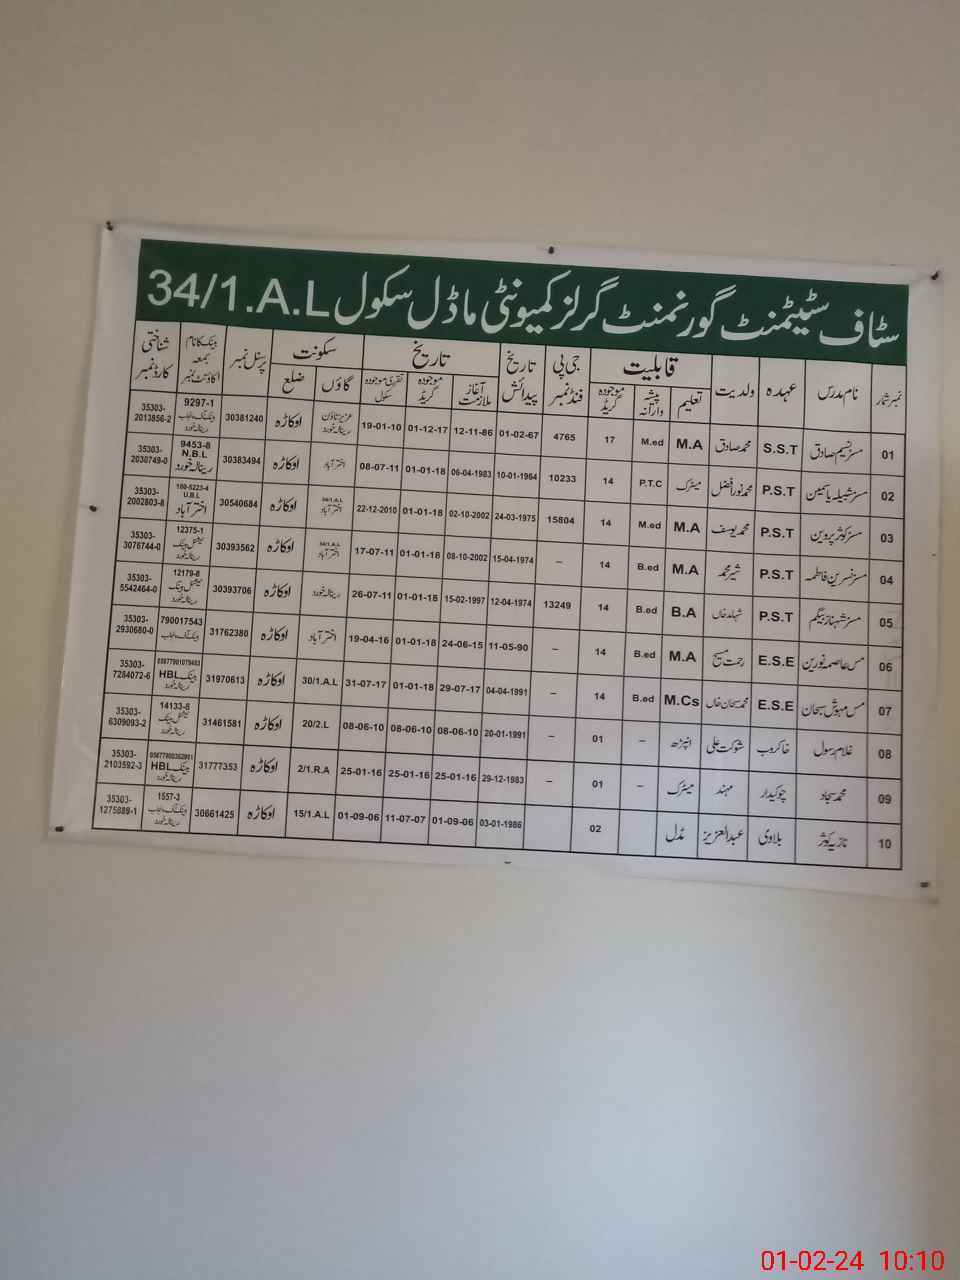 سٹاف سٹیٹمنٹ گورنمنٹ گرلز کمیونٹی ماڈل سکول 34/1.A.L
نمبر شمار نام مدرس عہدہ ولدیت قابلیت جی پی فنڈ نمبر تاریخ پیدائش تاریخ سکونت پرسنل نمبر بینک کا نام بمعہ اکاؤنٹ نمبر شناختی کارڈ نمبر
تعلیم پیشہ وارانہ موجودہ گریڈ آغاز ملازمت موجودہ گریڈ تقرری موجودہ سکول گاؤں ضلع
01 مسز نسیم صادق S.S.T محمد صادق M.A M.ed 17 4765 01-02-67 12-11-86 01-12-17 19-01-10 عزیز ٹاؤن رینالہ خورد اوکاڑہ 30381240 9297-1 بینک آف پنجاب رینالہ خورد 35303-2013856-2
02 مسز شمیلہ یاسمین P.S.T محمد نور افضل میٹرک P.T.C 14 10233 10-01-1964 06-04-1983 01-01-18 08-07-11 اختر آباد اوکاڑہ 30383494 9453-8 N.B.L رینالہ خورد 35303-2030749-0
03 مسز کوثر پروین P.S.T محمد یوسف M.A M.ed 14 15804 24-03-1975 02-10-2002 01-01-18 22-12-2010 34/1.A.L اختر آباد اوکاڑہ 30540684 160-5223-4 U.B.L اختر آباد 35303-2002803-8
04 مسز نسرین فاطمہ P.S.T شیر محمد M.A B.ed 14 – 15-04-1974 08-10-2002 01-01-18 17-07-11 34/1.A.L اختر آباد اوکاڑہ 30393562 12375-1 نیشنل بینک رینالہ خورد 35303-3076744-0
05 مسز شہناز بیگم P.S.T شہامد خاں B.A B.ed 14 13249 12-04-1974 15-02-1997 01-01-18 26-07-11 رینالہ خورد اوکاڑہ 30393706 12179-8 نیشنل بینک رینالہ خورد 35303-5542464-0
06 مس عاصمہ نورین E.S.E رحمت مسیح M.A B.ed 14 – 11-05-90 24-06-15 01-01-18 19-04-16 اختر آباد اوکاڑہ 31762380 790017543 بینک آف پنجاب 35303-2930680-0
07 مس مہوش سبحان E.S.E محمد سبحان خاں M.Cs B.ed 14 – 04-04-1991 29-07-17 01-01-18 31-07-17 30/1.A.L اوکاڑہ 31970613 بینک HBL رینالہ خورد 35303-7284072-6
08 غلام رسول خاکروب شوکت علی انپڑھ – 01 – 20-01-1991 08-06-10 08-06-10 08-06-10 20/2.L اوکاڑہ 31461581 14133-8 نیشنل بینک رینالہ خورد 35303-6309093-2
09 محمد سجاد چوکیدار مہند میٹرک – 01 – 29-12-1983 25-01-16 25-01-16 25-01-16 2/1.R.A اوکاڑہ 31777353 بینک HBL رینالہ خورد 35303-2103592-3
10 نازیہ کوثر بلاوی عبدالعزیز مڈل 02 03-01-1986 01-09-06 11-07-07 01-09-06 15/1.A.L اوکاڑہ 30661425 1557-3 بینک آف پنجاب رینالہ خورد 35303-1275889-1
01-02-24 10:10